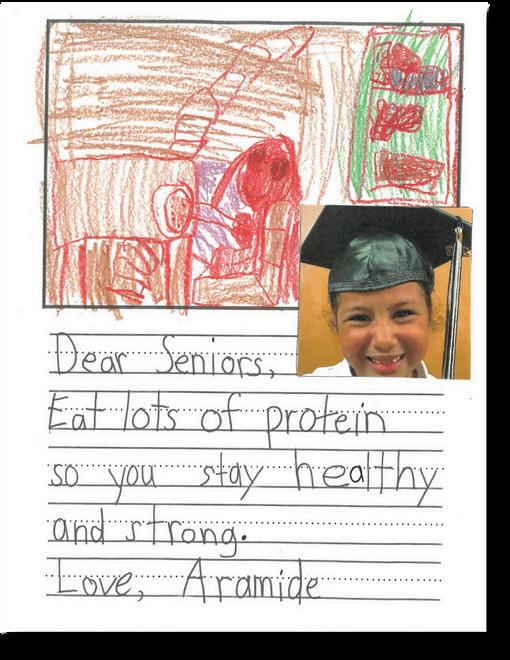 Dear Seniors,
Eat lots of protein
so you stay healthy
and strong.
Love, Aramide